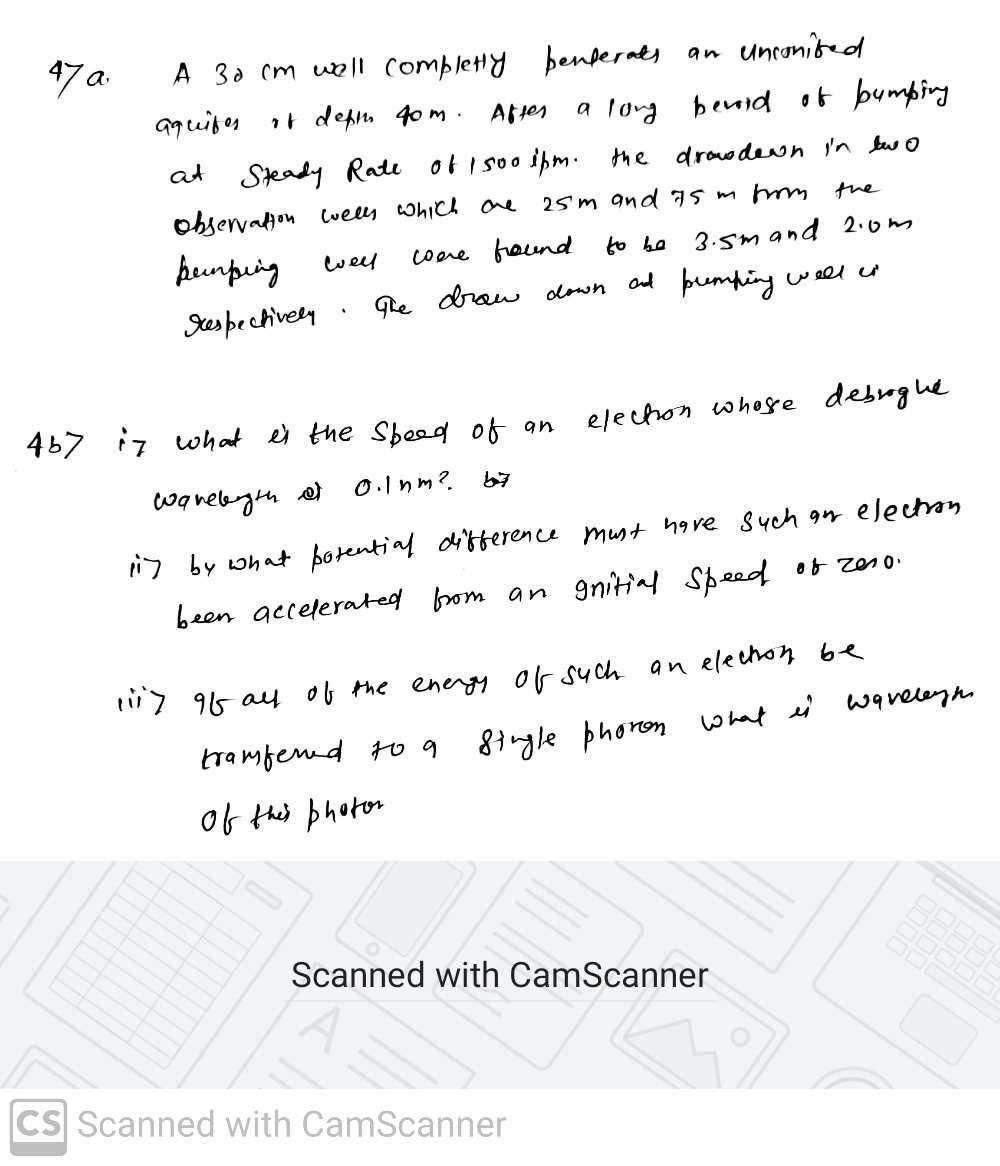 47 a. A 30 cm well completly penterats an unconibed
aquifer of depth 40 m. After a long period of pumping
at Steady Rate of 1500 lpm. the drawdown in two
observation wells which are 25m and 75 m from the
pumping well were found to be 3.5m and 2.0m
respectively. The draw down at pumping well is
4b7 i7 what is the Speed of an electron whose debroglie
wavelength is 0.1nm? b7
ii7 by what potential difference must have such an electron
been accelerated from an initial Speed of zero.
iii7 If all of the energy of such an electron be
transferred to a single photon what is wavelength
of this photon
Scanned with CamScanner
CS Scanned with CamScanner